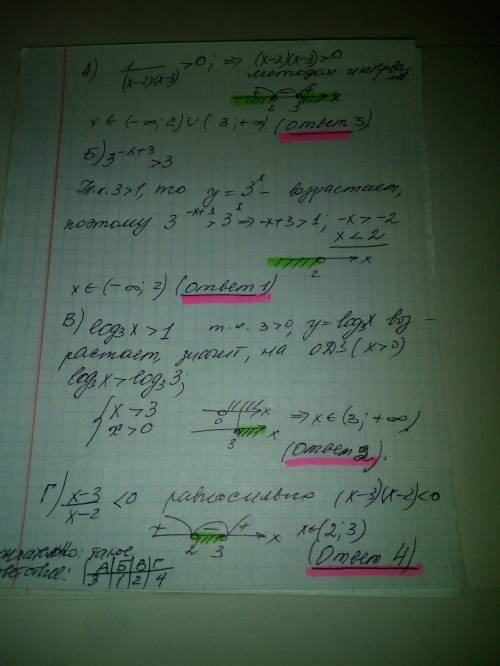 А) 1/((x-2)(x-3)) >0; ⇒ (x-2)(x-3)>0
методом интервалов
+ - + x
2 3
x ∈ (-∞; 2) ∪ (3; +∞). (Ответ 3)
Б) 3^(-x+3) > 3
Т.к. 3>1, то y = 3^x - возрастает,
поэтому 3^(-x+3) > 3^1 ⇒ -x+3>1; -x>-2
x<2
2 x
x ∈ (-∞; 2) (Ответ 1)
В) log₃x>1 т.к. 3>0, y=log₃x воз-
растает, значит, на ОДЗ (x>0)
log₃x>log₃3;
{ x>3
x>0
0 x
3 x
⇒ x∈(3; +∞)
(Ответ 2).
Г) (x-3)/(x-2) <0 равносильно (x-3)(x-2)<0
+ - + x
2 3
x∈(2; 3)
(Ответ 4)
такое
А Б В Г
3 1 2 4